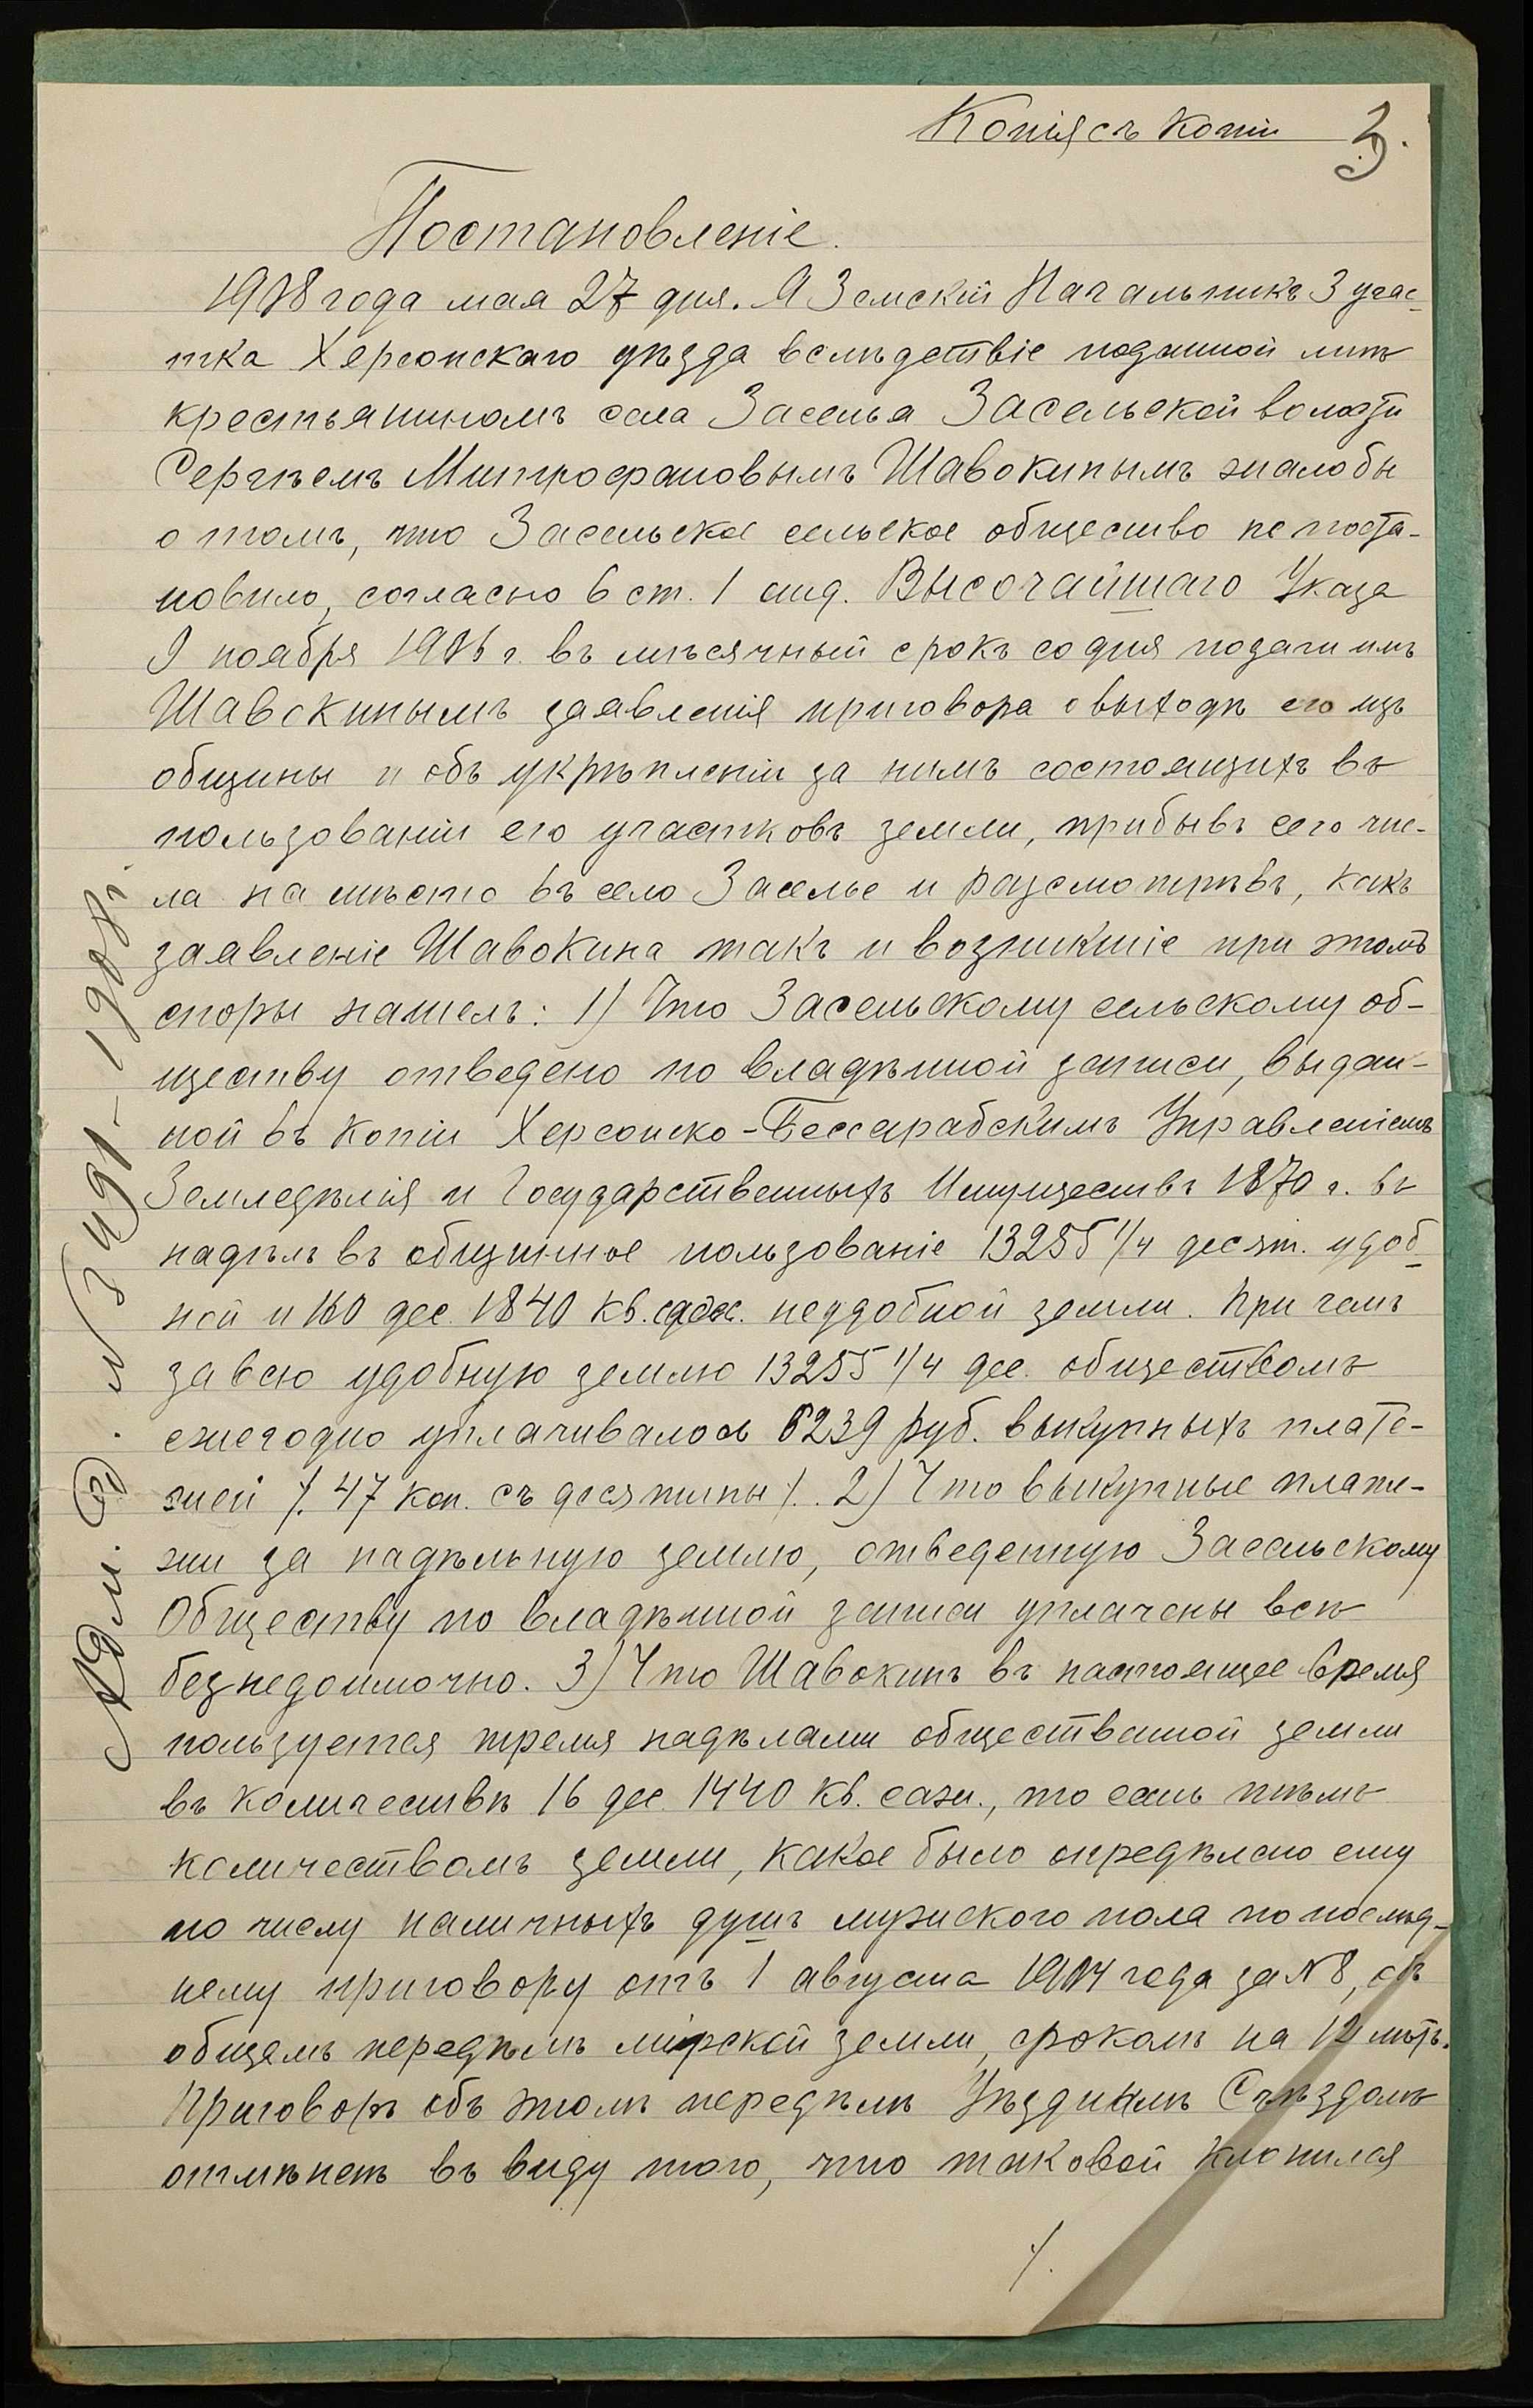 Копія съ копіи
3.
Постановленіе.
1908 года мая 27 дня. Я Земскій Начальникъ 3 учас-
тка Херсонскаго уѣзда вслѣдствіе поданной мнѣ
крестьяниномъ села Заселья Засельской волости
Сергѣемъ Митрофановымъ Шавокинымъ жалобы
о томъ, что Засельское сельское общество не поста-
новило, согласно 6 ст. 1 отд. Высочайшаго Указа
9 ноября 1906 г. въ мѣсячный срокъ со дня подачи имъ
Шавокинымъ заявленія приговора о выходѣ его изъ
общины и объ укрѣпленіи за нимъ состоящихъ въ
пользованіи его участковъ земли, прибывъ сего чис-
ла на мѣсто въ село Заселье и разсмотрѣвъ, какъ
заявленіе Шавокина такъ и возникшіе при этомъ
споры нашелъ: 1) Что Засельскому сельскому об-
ществу отведено по владѣнной записи, выдан-
ной въ копіи Херсонско-Бессарабскимъ Управленіемъ
Земледѣлія и Государственныхъ Имуществъ 1870 г. въ
надѣлъ въ общинное пользованіе 13255 1/4 десят. удоб-
ной и 160 дес. 1840 кв. саж. неудобной земли. При чемъ
за всю удобную землю 13255 1/4 дес. обществомъ
ежегодно уплачивалось 6239 руб. выкупныхъ плате-
жей /. 47 коп. съ десятины /. 2) Что выкупные плате-
жи за надѣльную землю, отведенную Засельскому
Обществу по владѣнной записи уплачены всѣ
безнедоимочно. 3) Что Шавокинъ въ настоящее время
пользуется тремя надѣлами общественной земли
въ количествѣ 16 дес. 1440 кв. саж., то есть тѣмъ
количествомъ земли, какое было опредѣлено ему
по числу наличныхъ душъ мужского пола по послѣд-
нему приговору отъ 1 августа 1904 года за № 8, объ
общемъ передѣлѣ мірской земли, срокомъ на 12 лѣтъ.
Приговоръ объ этомъ передѣлѣ Уѣзднымъ Съѣздомъ
отмѣненъ въ виду того, что таковой клонился
/.